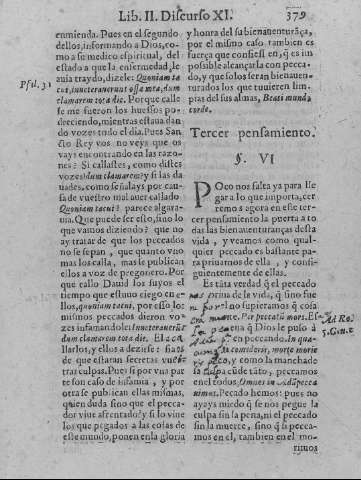 Lib. II. Discurso XI. 379
enmienda. Pues en el segundo
dellos, informando a Dios, co-
mo a se medico espiritual, del
estado a que la enfermedad, le
auia traydo, dizele: Quoniam ta
cui, inueterauerunt ossa mea, dum
clamarem tota die. Porque calle
se me fueron los huessos po-
dreciendo, mientras estaua dan
do vozes todo el dia. Pues San-
sto Rey vos no veys que os
vays encontrando en las razo-
nes? Si callastes, como distes
vozes dum clamarem? y si las da
uades, como señalays por cau-
sa de vuestro mal auer callado
Quoniam tacui? parece algara-
uia. Que puede ser esto, sino lo
que vamos diziendo? que no
ay tratar de que los peccados
no se sepan, que quanto vno
mas los calla, mas le publican
ellos a voz de pregonero. Por
que callo Dauid los suyos el
tiempo que estuuo ciego en e-
llos, quoniam tacui, por esso los
mismos peccados dieron vo-
zes infamandole: Inueterauerūt
dum clamarem tota die. El ca-
llarlos, y ellos a dezirse: fiaos
de que estaran secretas vues-
tras culpas. Pues si por vna par
te son caso de infamia, y por
otra se publican ellas mismas,
quien duda sino que el pecca-
dor viue afrentado? y si lo viue
los que pegados a las cosas de
este mundo, ponen en la gloria
Psal. 31
y honra del su bienauenturāça,
por el mismo caso tambien es
fuerça que confiessen, q̄ es im
possible alcançarla con pecca-
do, y que solos seran bienauen-
turados los que tuuieren lim-
pias del sus almas, Beati mundo
corde.
Tercer pensamiento.
§. VI
POco nos falta ya para lle
gar a lo que importa, cer
remos agora en este ter-
cer pensamiento la puerta a to-
dar las bienauenturanças desta
vida, y veamos como qual-
quier peccado es bastante pa-
ra priuarnos de ella, y consi-
guientemente de ellas.
Es tāta verdad q̄ el peccado
nos priua de la vida, q̄ sino fue
no supieramos q̄ cosa
muerte. Per peccatū mors. Es
pena q̄ Dios le puso à
en peccando. In qua-
comederis, morte morie
y como la mancha de
la culpa cūde tāto, peccamos
en el todos, Omnes in Adā pecca
uimus. Pecado hemos: pues no
ayays miedo q̄ se nos pegue la
culpa sin la pena, ni el peccado
sin la muerte, sino q̄ si pecca-
mos en el, tambien en el mo-
rimos
Ad Ro.
5. Gin. 2